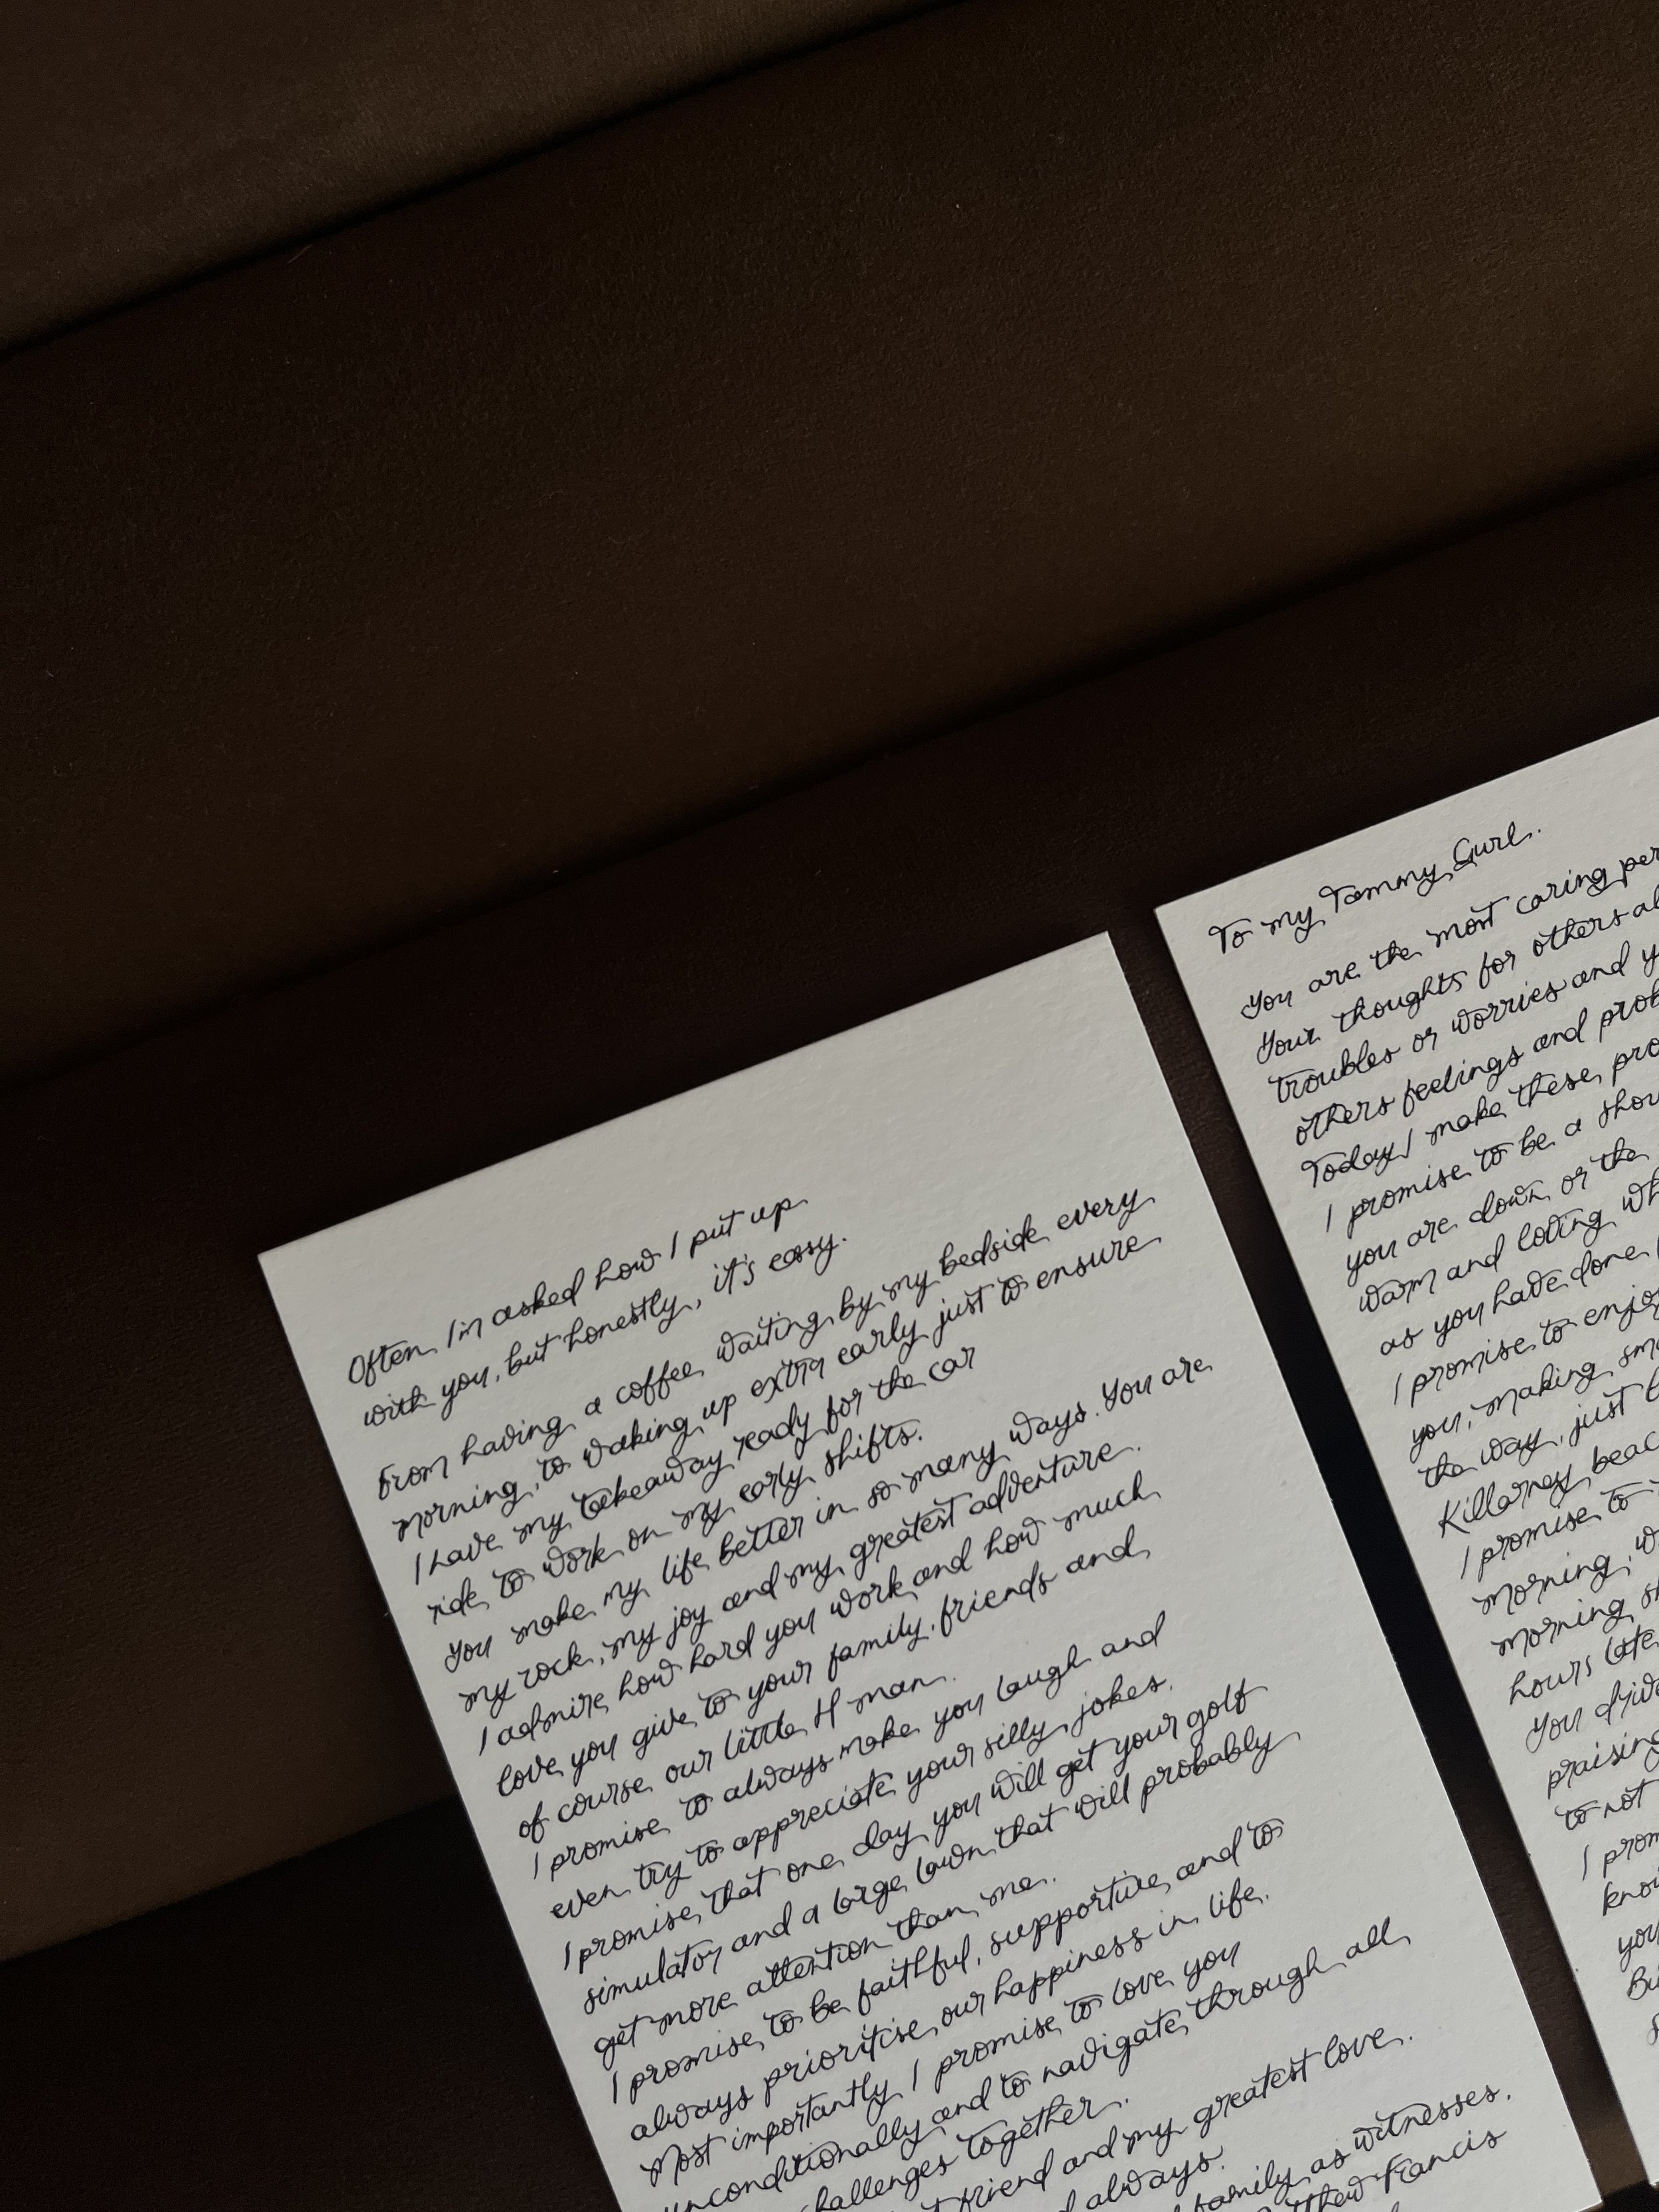 Often I'm asked how I put up
with you, but honestly, it's easy.
From having a coffee waiting by my bedside every
morning, to waking up extra early just to ensure
I have my takeaway ready for the car
ride to work on my early shifts.
You make my life better in so many ways. You are
my rock, my joy and my greatest adventure.
I admire how hard you work and how much
love you give to your family, friends and
of course our little H man.
I promise to always make you laugh and
even try to appreciate your silly jokes.
I promise that one day you will get your golf
simulator and a large lawn that will probably
get more attention than me.
I promise to be faithful, supportive and to
always prioritise our happiness in life.
Most importantly I promise to love you
unconditionally and to navigate through all
challenges together.
friend and my greatest love.
always.
family as witnesses.
Francis
To my Tammy Gurl.
You are the most caring
Your thoughts for others
troubles or worries and
others feelings and
Today I make these
I promise to be a
you are down or the
warm and loving
as you have done
I promise to enjoy
you, making
the way, just
Killarney
I promise to
morning,
morning
hours late
You
praising
to not
I